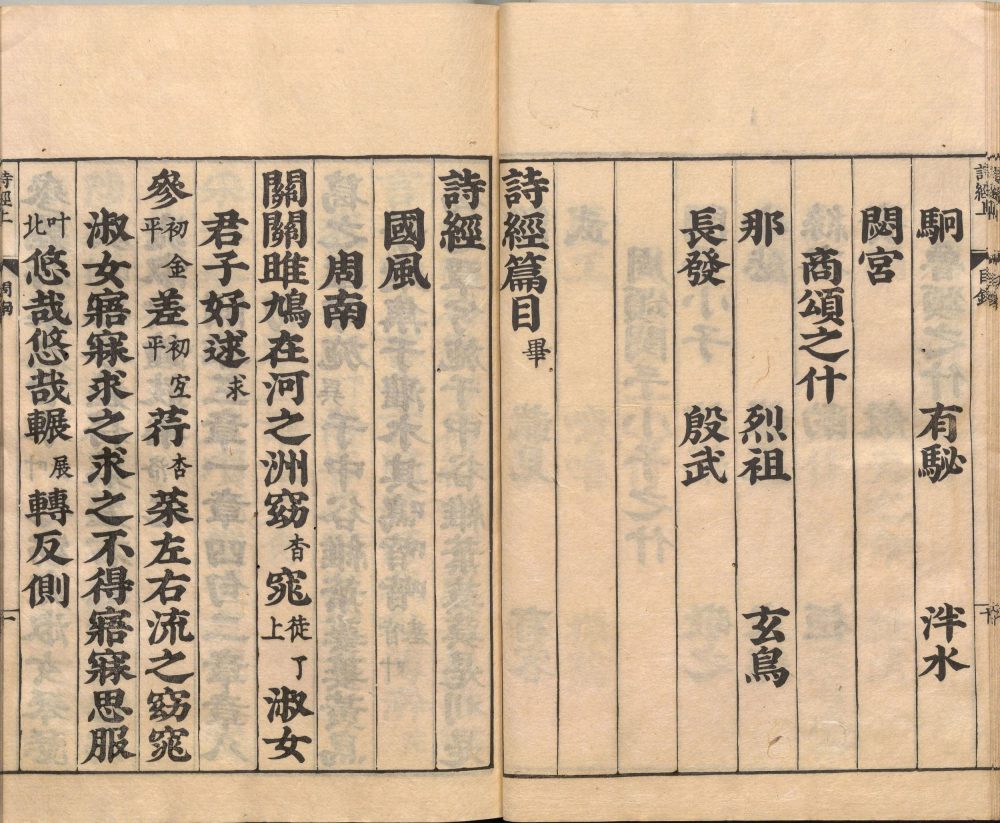 駉 有駜 泮水
閟宮
商頌之什
那 烈祖 玄鳥
長發 殷武
詩經篇目畢
詩經
國風
周南
關關雎鳩在河之洲窈杳窕徒了上淑女
君子好逑求
參初金平差初宜平荇杏菜左右流之窈窕
淑女寤寐求之求之不得寤寐思服
叶北悠哉悠哉輾展轉反側
詩經上 周南 一